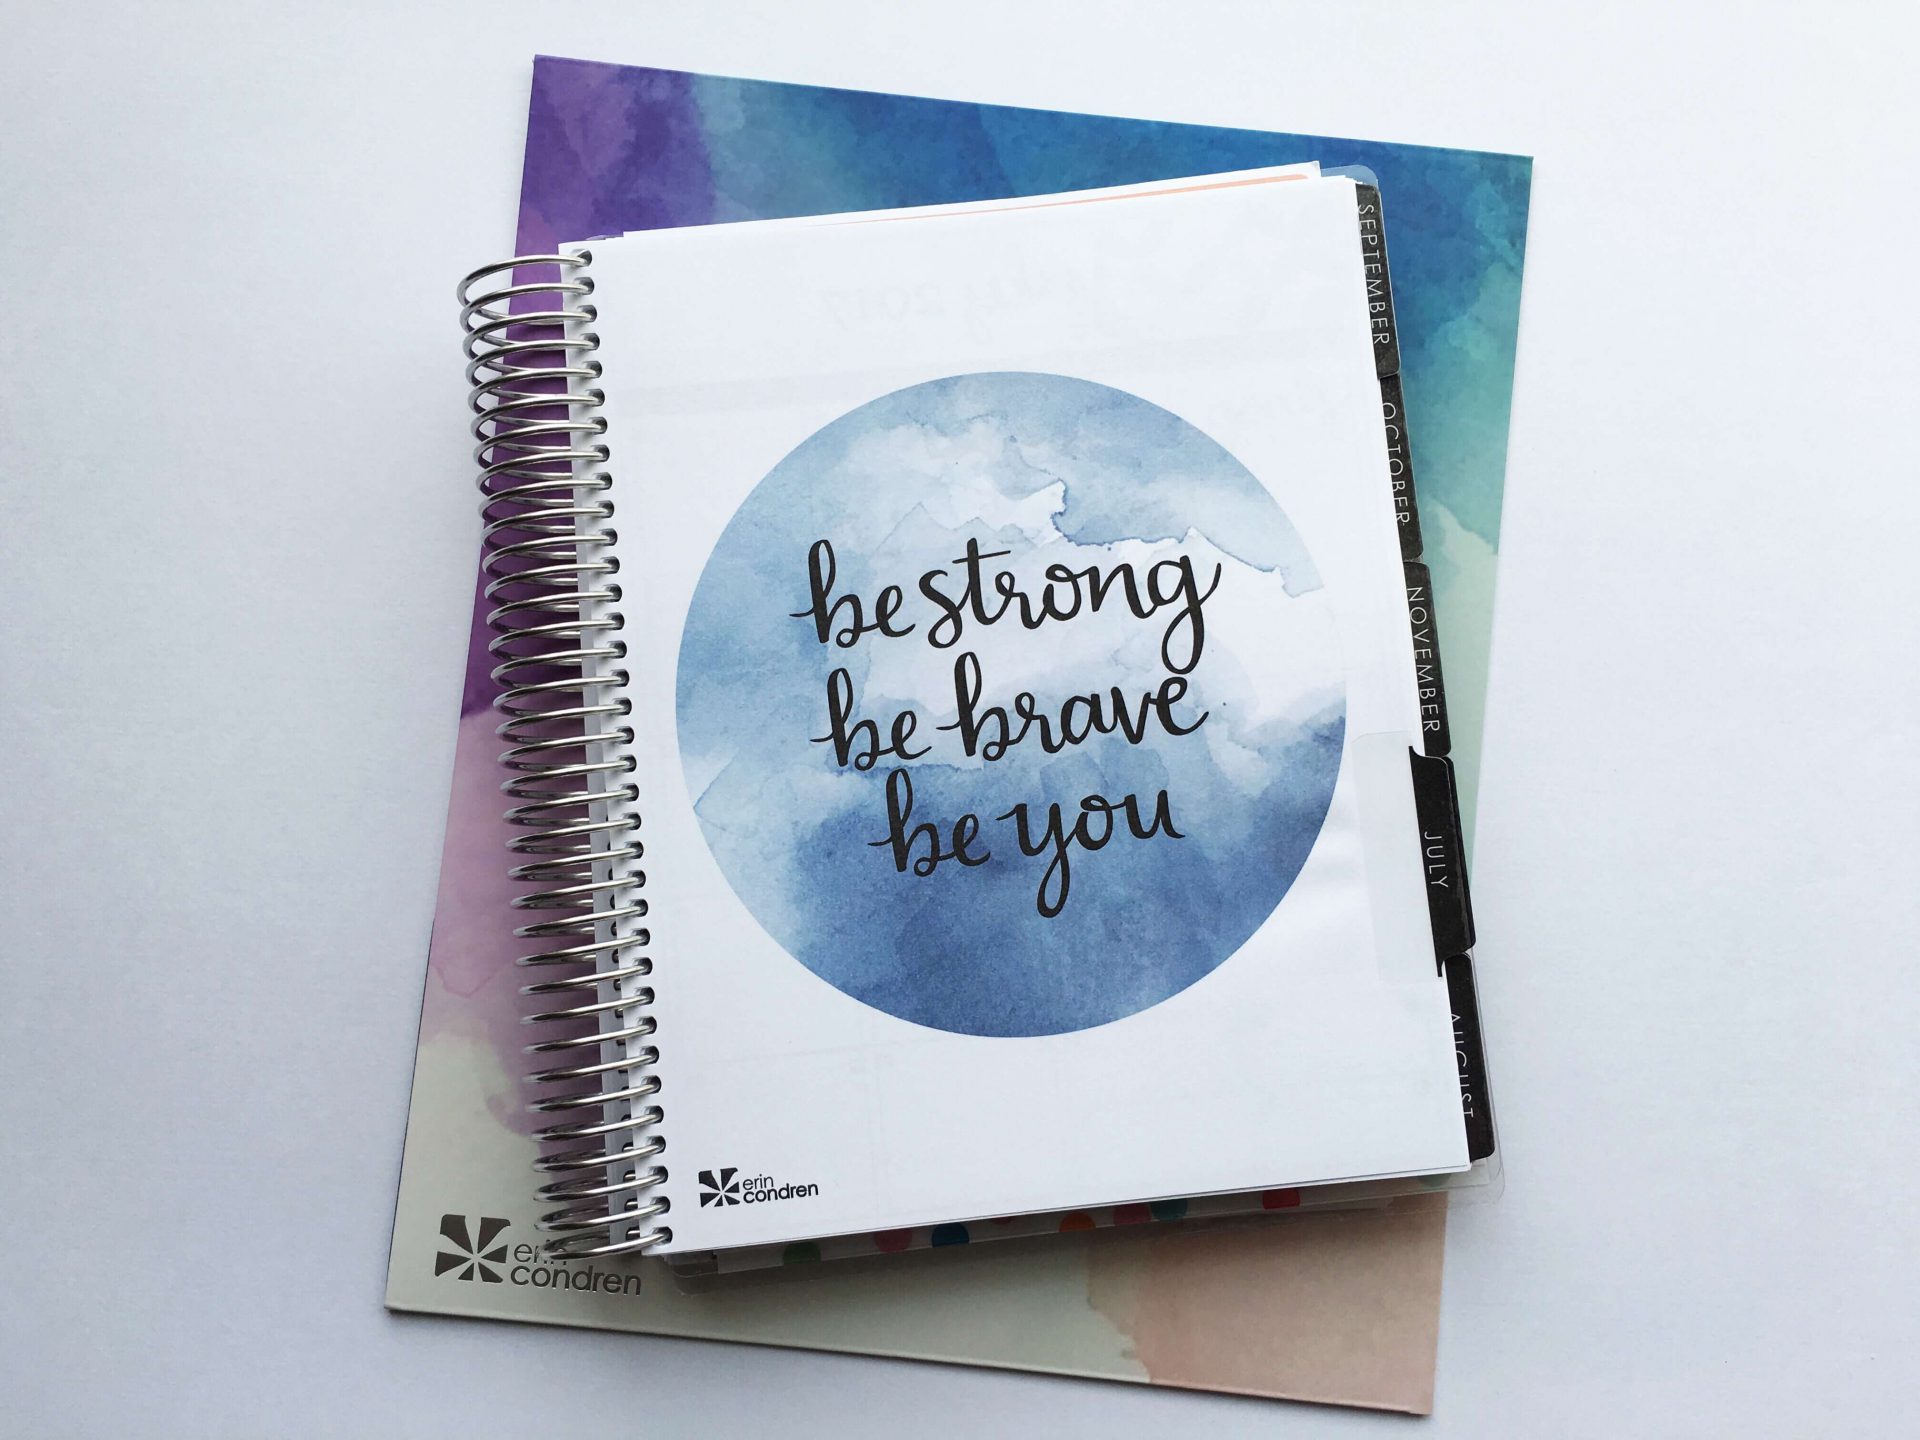 be strong
be brave
be you
SEPTEMBER
OCTOBER
NOVEMBER
JULY
AUGUST
erin
condren
erin
condren